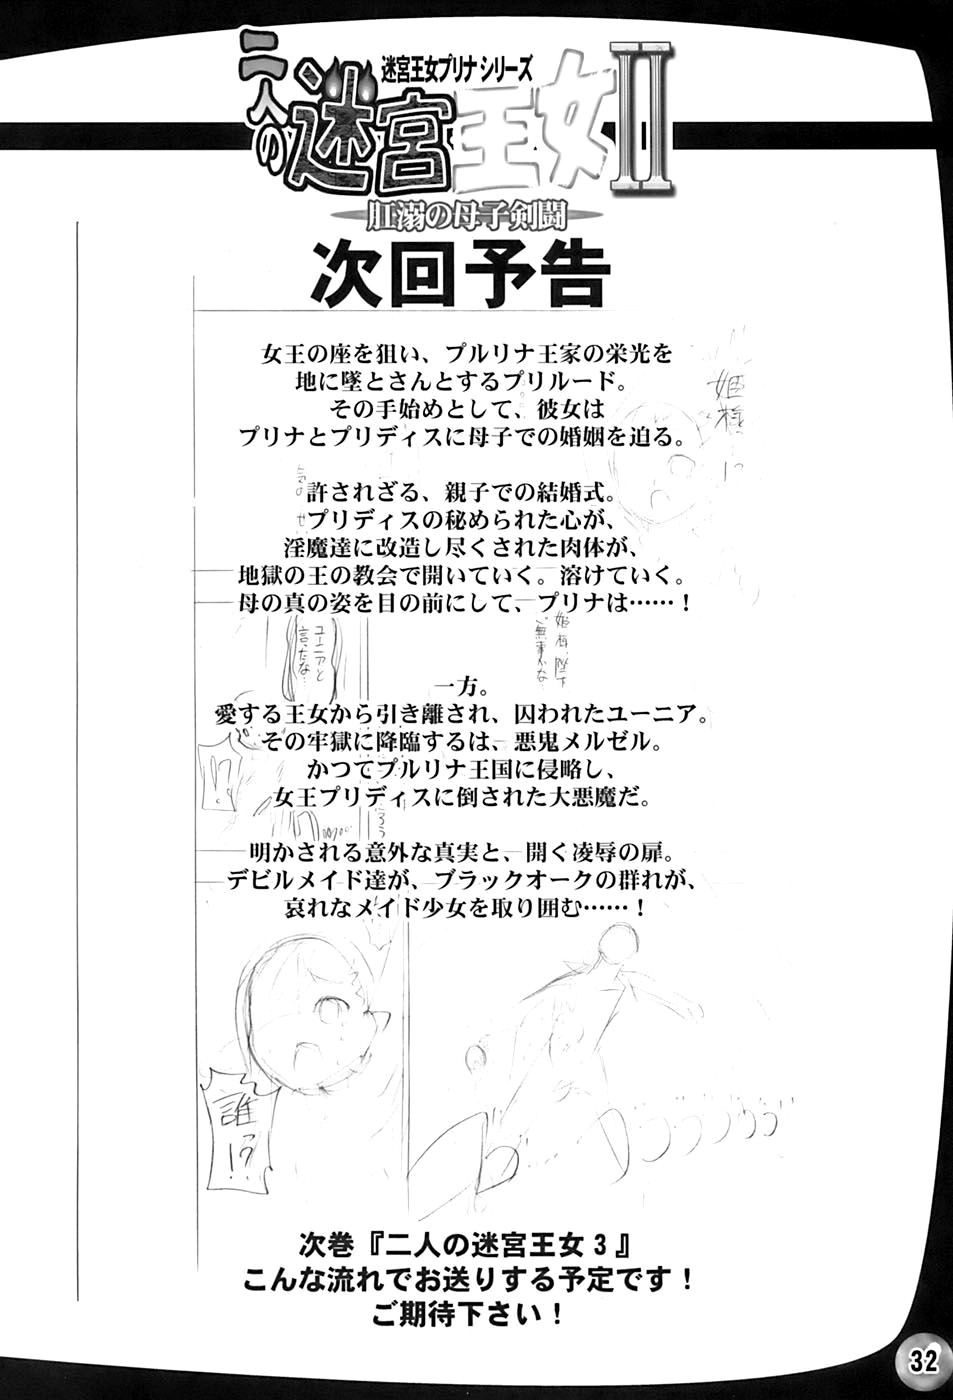 迷宮王女プリナシリーズ
二人の迷宮王女II
肛溺の母子剣闘
次回予告
女王の座を狙い、プルリナ王家の栄光を
地に墜とさんとするプリルード。
その手始めとして、彼女は
プリナとプリディスに母子での婚姻を迫る。
許されざる、親子での結婚式。
プリディスの秘められた心が、
淫魔達に改造し尽くされた肉体が、
地獄の王の教会で開いていく。溶けていく。
母の真の姿を目の前にして、プリナは……！
一方。
愛する王女から引き離され、囚われたユーニア。
その牢獄に降臨するは、悪鬼メルゼル。
かつてプルリナ王国に侵略し、
女王プリディスに倒された大悪魔だ。
明かされる意外な真実と、開く凌辱の扉。
デビルメイド達が、ブラックオークの群れが、
哀れなメイド少女を取り囲む……！
姫様
!?
ユーニアと
言ったな…
姫様、陛下
ご無事かな…
!?
誰!?
次巻『二人の迷宮王女３』
こんな流れでお送りする予定です！
ご期待下さい！
32